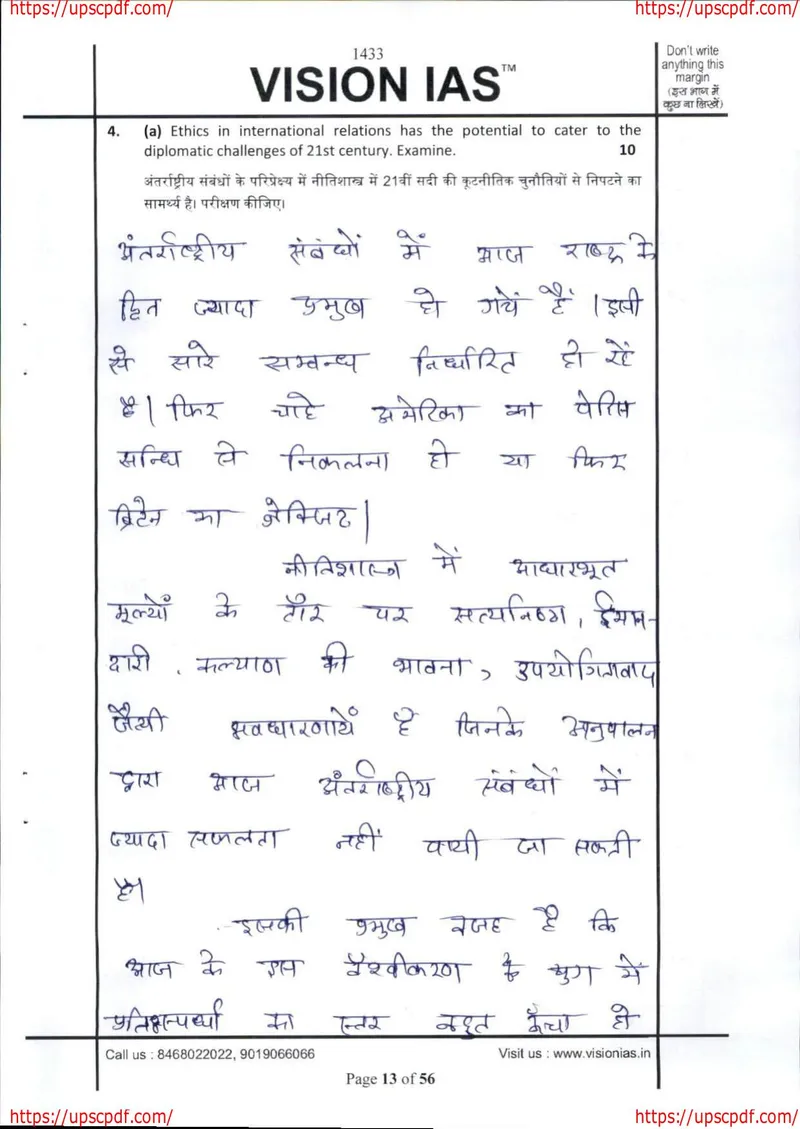 https://upscpdf.com/ https://upscpdf.com/
1433
VISION IAS™
Don't write
anything this
margin
(इस भाग में
कुछ ना लिखें)
4. (a) Ethics in international relations has the potential to cater to the
diplomatic challenges of 21st century. Examine. 10
अंतर्राष्ट्रीय संबंधों के परिप्रेक्ष्य में नीतिशास्त्र में 21वीं सदी की कूटनीतिक चुनौतियों से निपटने का
सामर्थ्य है। परीक्षण कीजिए।
अंतर्राष्ट्रीय संबंधों में आज राष्ट्र के
हित ज्यादा प्रमुख हो गयें हैं। इसी
से सारे सम्बन्ध निर्धारित हो रहें
है। फिर चाहे अमेरिका का पेरिस
सन्धि से निकलना हो या फिर
ब्रिटेन का ब्रेक्जिट।
नीतिशास्त्र में आधारभूत
मूल्यों के तौर पर सत्यनिष्ठा, ईमान-
दारी, कल्याण की भावना, उपयोगितावाद
जैसी अवधारणायें है जिनके अनुपालन
द्वारा आज अंतर्राष्ट्रीय संबंधों में
ज्यादा सफलता नहीं पायी जा सकती
है।
इसकी प्रमुख वजह है कि
आज के इस वैश्वीकरण के युग में
प्रतिस्पर्धा का स्तर बहुत ऊँचा हो
Call us : 8468022022, 9019066066 Visit us : www.visionias.in
Page 13 of 56
https://upscpdf.com/ https://upscpdf.com/